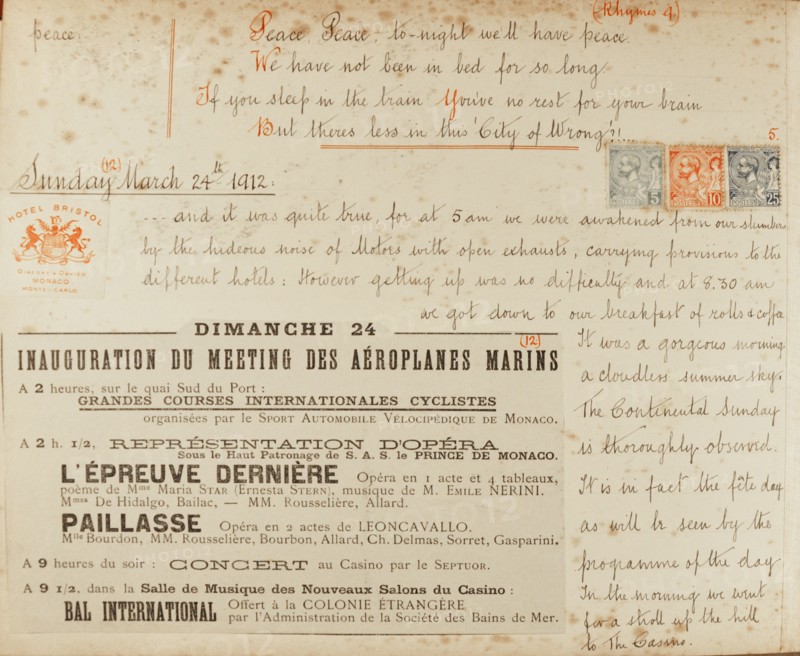 (Rhymes 9)
peace.
Peace, Peace, to-night we'll have peace.
We have not been in bed for so long.
If you sleep in the train You've no rest for your brain
But theres less in this 'City of Wrong'!!...
5.
(12)
Sunday March 24th 1912.
5 10 25
HOTEL BRISTOL
MONACO
MONTE-CARLO
--- and it was quite true, for at 5 am we were awakened from our slumbers
by the hideous noise of Motors with open exhausts, carrying provisions to the
different hotels: However getting up was no difficulty and at 8.30 am
we got down to our breakfast of rolls & coffee
It was a gorgeous morning
a cloudless summer sky.
The Continental Sunday
is thoroughly observed.
It is in fact the fête day
as will be seen by the
programme of the day
In the morning we went
for a stroll up the hill
to The Casino.
DIMANCHE 24
(12)
INAUGURATION DU MEETING DES AÉROPLANES MARINS
A 2 heures, sur le quai Sud du Port :
GRANDES COURSES INTERNATIONALES CYCLISTES
organisées par le SPORT AUTOMOBILE VÉLOCIPÉDIQUE DE MONACO.
A 2 h. 1/2, REPRÉSENTATION D'OPÉRA
Sous le Haut Patronage de S. A. S. le PRINCE DE MONACO.
L'ÉPREUVE DERNIÈRE Opéra en 1 acte et 4 tableaux,
poème de Mme Maria STAR (Ernesta STERN), musique de M. EMILE NERINI.
Mmes De Hidalgo, Bailac, — MM. Rousselière, Allard.
PAILLASSE Opéra en 2 actes de LEONCAVALLO.
Mlle Bourdon, MM. Rousselière, Bourbon, Allard, Ch. Delmas, Sorret, Gasparini.
A 9 heures du soir : CONCERT au Casino par le SEPTUOR.
A 9 1/2, dans la Salle de Musique des Nouveaux Salons du Casino :
BAL INTERNATIONAL Offert à la COLONIE ÉTRANGÈRE
par l'Administration de la Société des Bains de Mer.